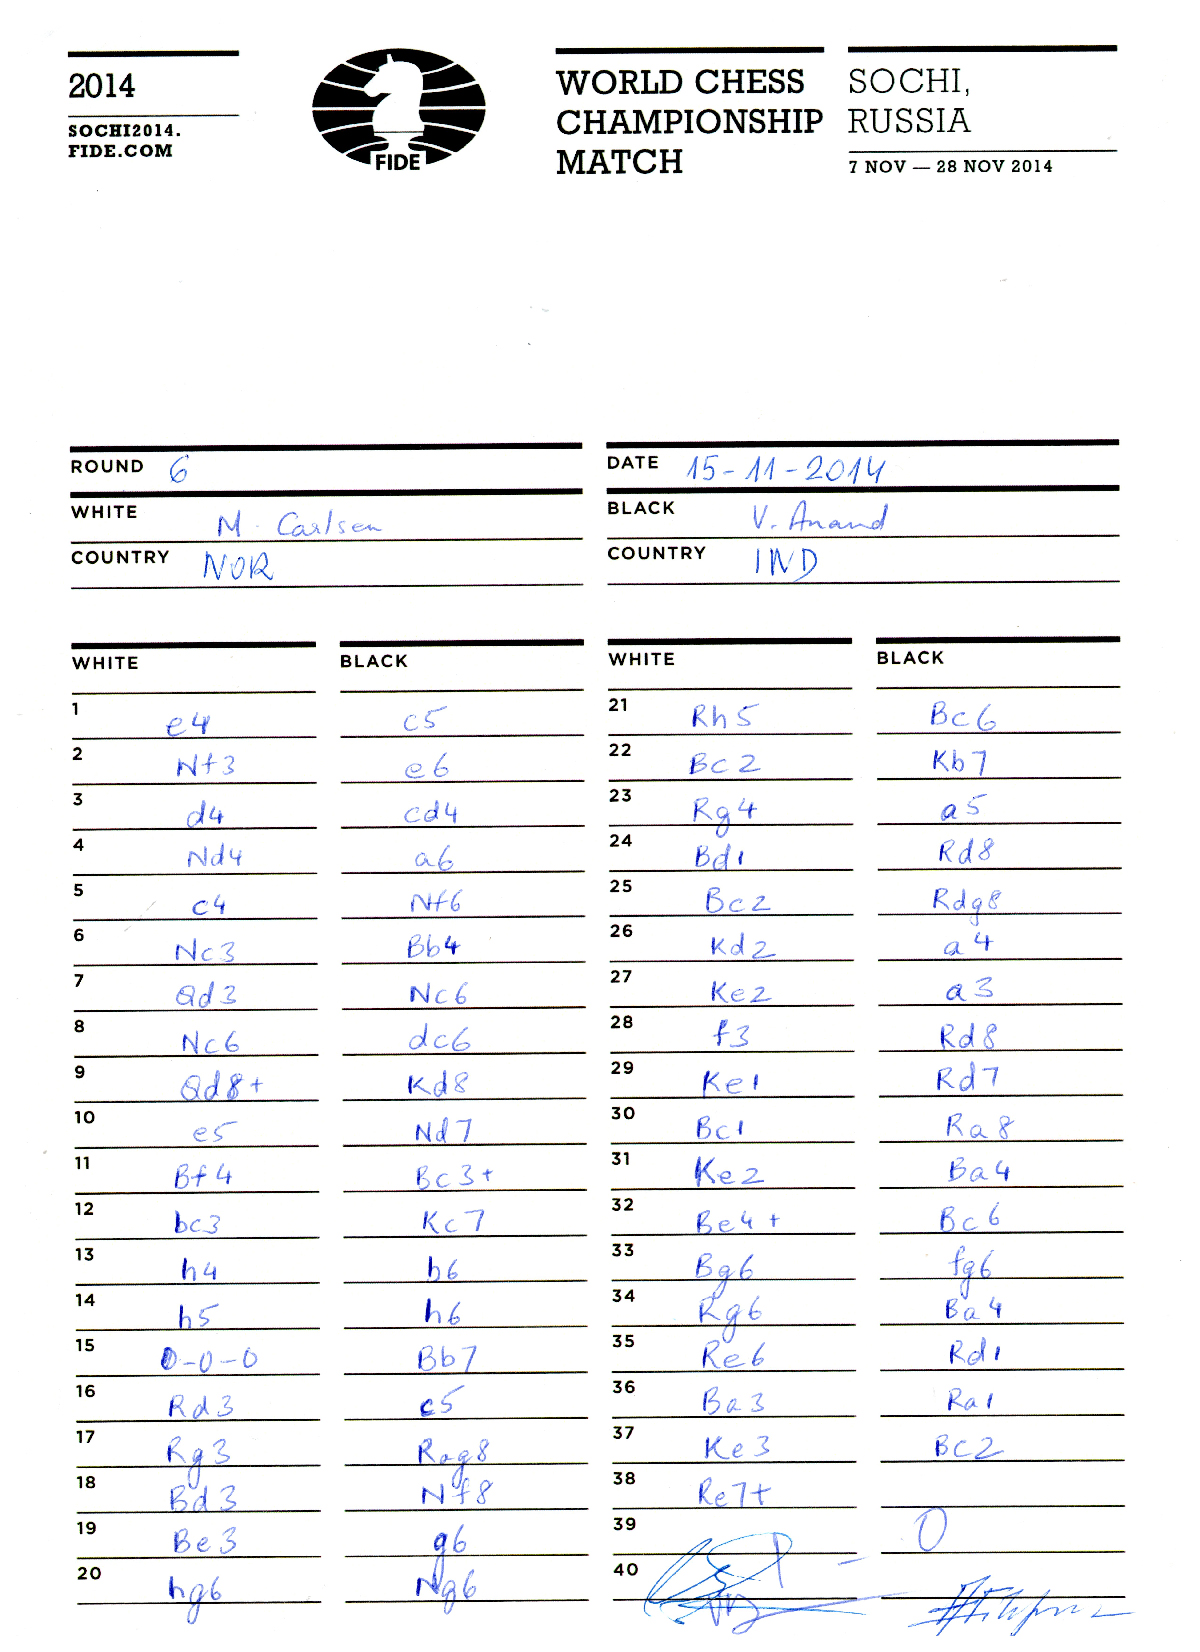 2014
SOCHI2014.
FIDE.COM
FIDE
WORLD CHESS
CHAMPIONSHIP
MATCH
SOCHI,
RUSSIA
7 NOV — 28 NOV 2014
ROUND 6 DATE 15-11-2014
WHITE M. Carlsen BLACK V. Anand
COUNTRY NOR COUNTRY IND
WHITE BLACK WHITE BLACK
1 e4 c5 21 Rh5 Bc6
2 Nf3 e6 22 Bc2 Kb7
3 d4 cd4 23 Rg4 a5
4 Nd4 a6 24 Bd1 Rd8
5 c4 Nf6 25 Bc2 Rdg8
6 Nc3 Bb4 26 Kd2 a4
7 Qd3 Nc6 27 Ke2 a3
8 Nc6 dc6 28 f3 Rd8
9 Qd8+ Kd8 29 Ke1 Rd7
10 e5 Nd7 30 Bc1 Ra8
11 Bf4 Bc3+ 31 Ke2 Ba4
12 bc3 Kc7 32 Be4+ Bc6
13 h4 b6 33 Bg6 fg6
14 h5 h6 34 Rg6 Ba4
15 0-0-0 Bb7 35 Re6 Rd1
16 Rd3 c5 36 Ba3 Ra1
17 Rg3 Rag8 37 Ke3 Bc2
18 Bd3 Nf8 38 Re7+
19 Be3 g6 39 1 - 0
20 hg6 Ng6 40